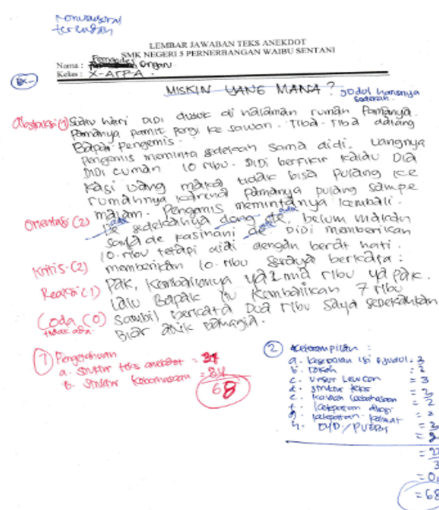 Konvensional
terendah
LEMBAR JAWABAN TEKS ANEKDOT
SMK NEGERI 5 PERNERBANGAN WAIBU SENTANI
Nama :
Kelas : X-ATPA
MISKIN YANG MANA? Judul harusnya
Abstraksi (3) Suatu hari Didi duduk di halaman rumah Pamanya.
Pamanya pamit pergi ke sawah. Tiba-Tiba datang
Bapak Pengemis.
pengemis meminta sedekah sama didi. Uangnya
DIDI cuman 10 ribu. DIDI berfikir kalau DIA
kasi uang maka tidak bisa pulang ke
rumahnya karena pamanya pulang sampe
malam. Pengemis memintanya kembali.
Orientasi (2) sedekahnya dong de, belum makan
saya de kasihani de DIDI memberikan
10 ribu tetapi didi dengan berat hati.
Kritis (2) memberikan 10 ribu berkata:
Reaksi (1) Pak, kembaliannya ya 2 ribu ya pak.
lalu Bapak itu kembalikan 7 ribu
Coda (0) sambil berkata Dua ribu saya sedekahkan
Biar adik bahagia.
1 Pengetahuan
a. Struktur teks anekdot =
b. Struktur kebahasaan =
68
2 Keterampilan :
a. kesesuaian isi & judul = 3
b. tokoh = 3
c. unsur lelucon = 3
d. struktur teks
e. kaidah kebahasaan = 2
f. ketepatan = 2
g. ketepatan kalimat
h. EYD/PUEBI
= 68